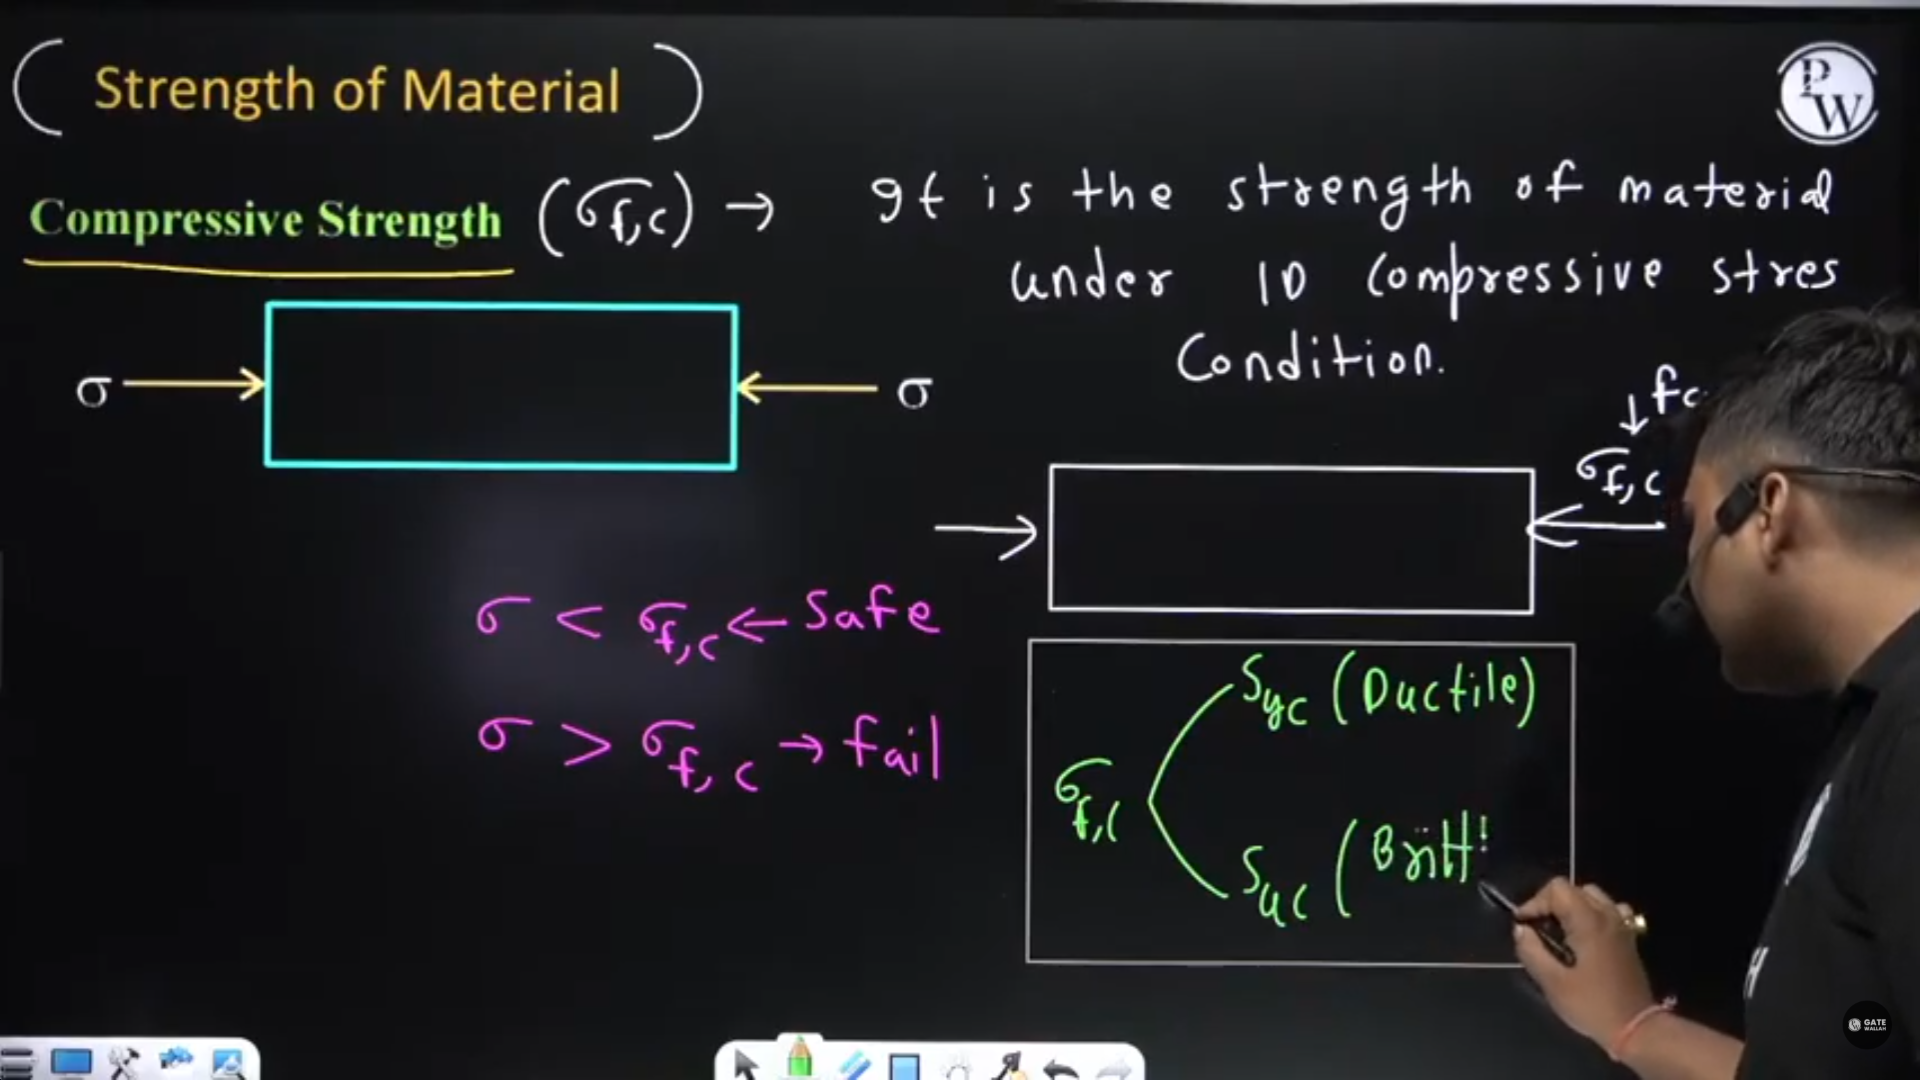 ( Strength of Material )
PW
Compressive Strength (σf,c) → It is the strength of material
under 1D compressive stres
Condition.
σ → ← σ
↓ fc
σf,c
σ < σf,c ← Safe
σ > σf,c → fail
σf,c
Syc (Ductile)
Suc (Britt
GATE
WALLAH